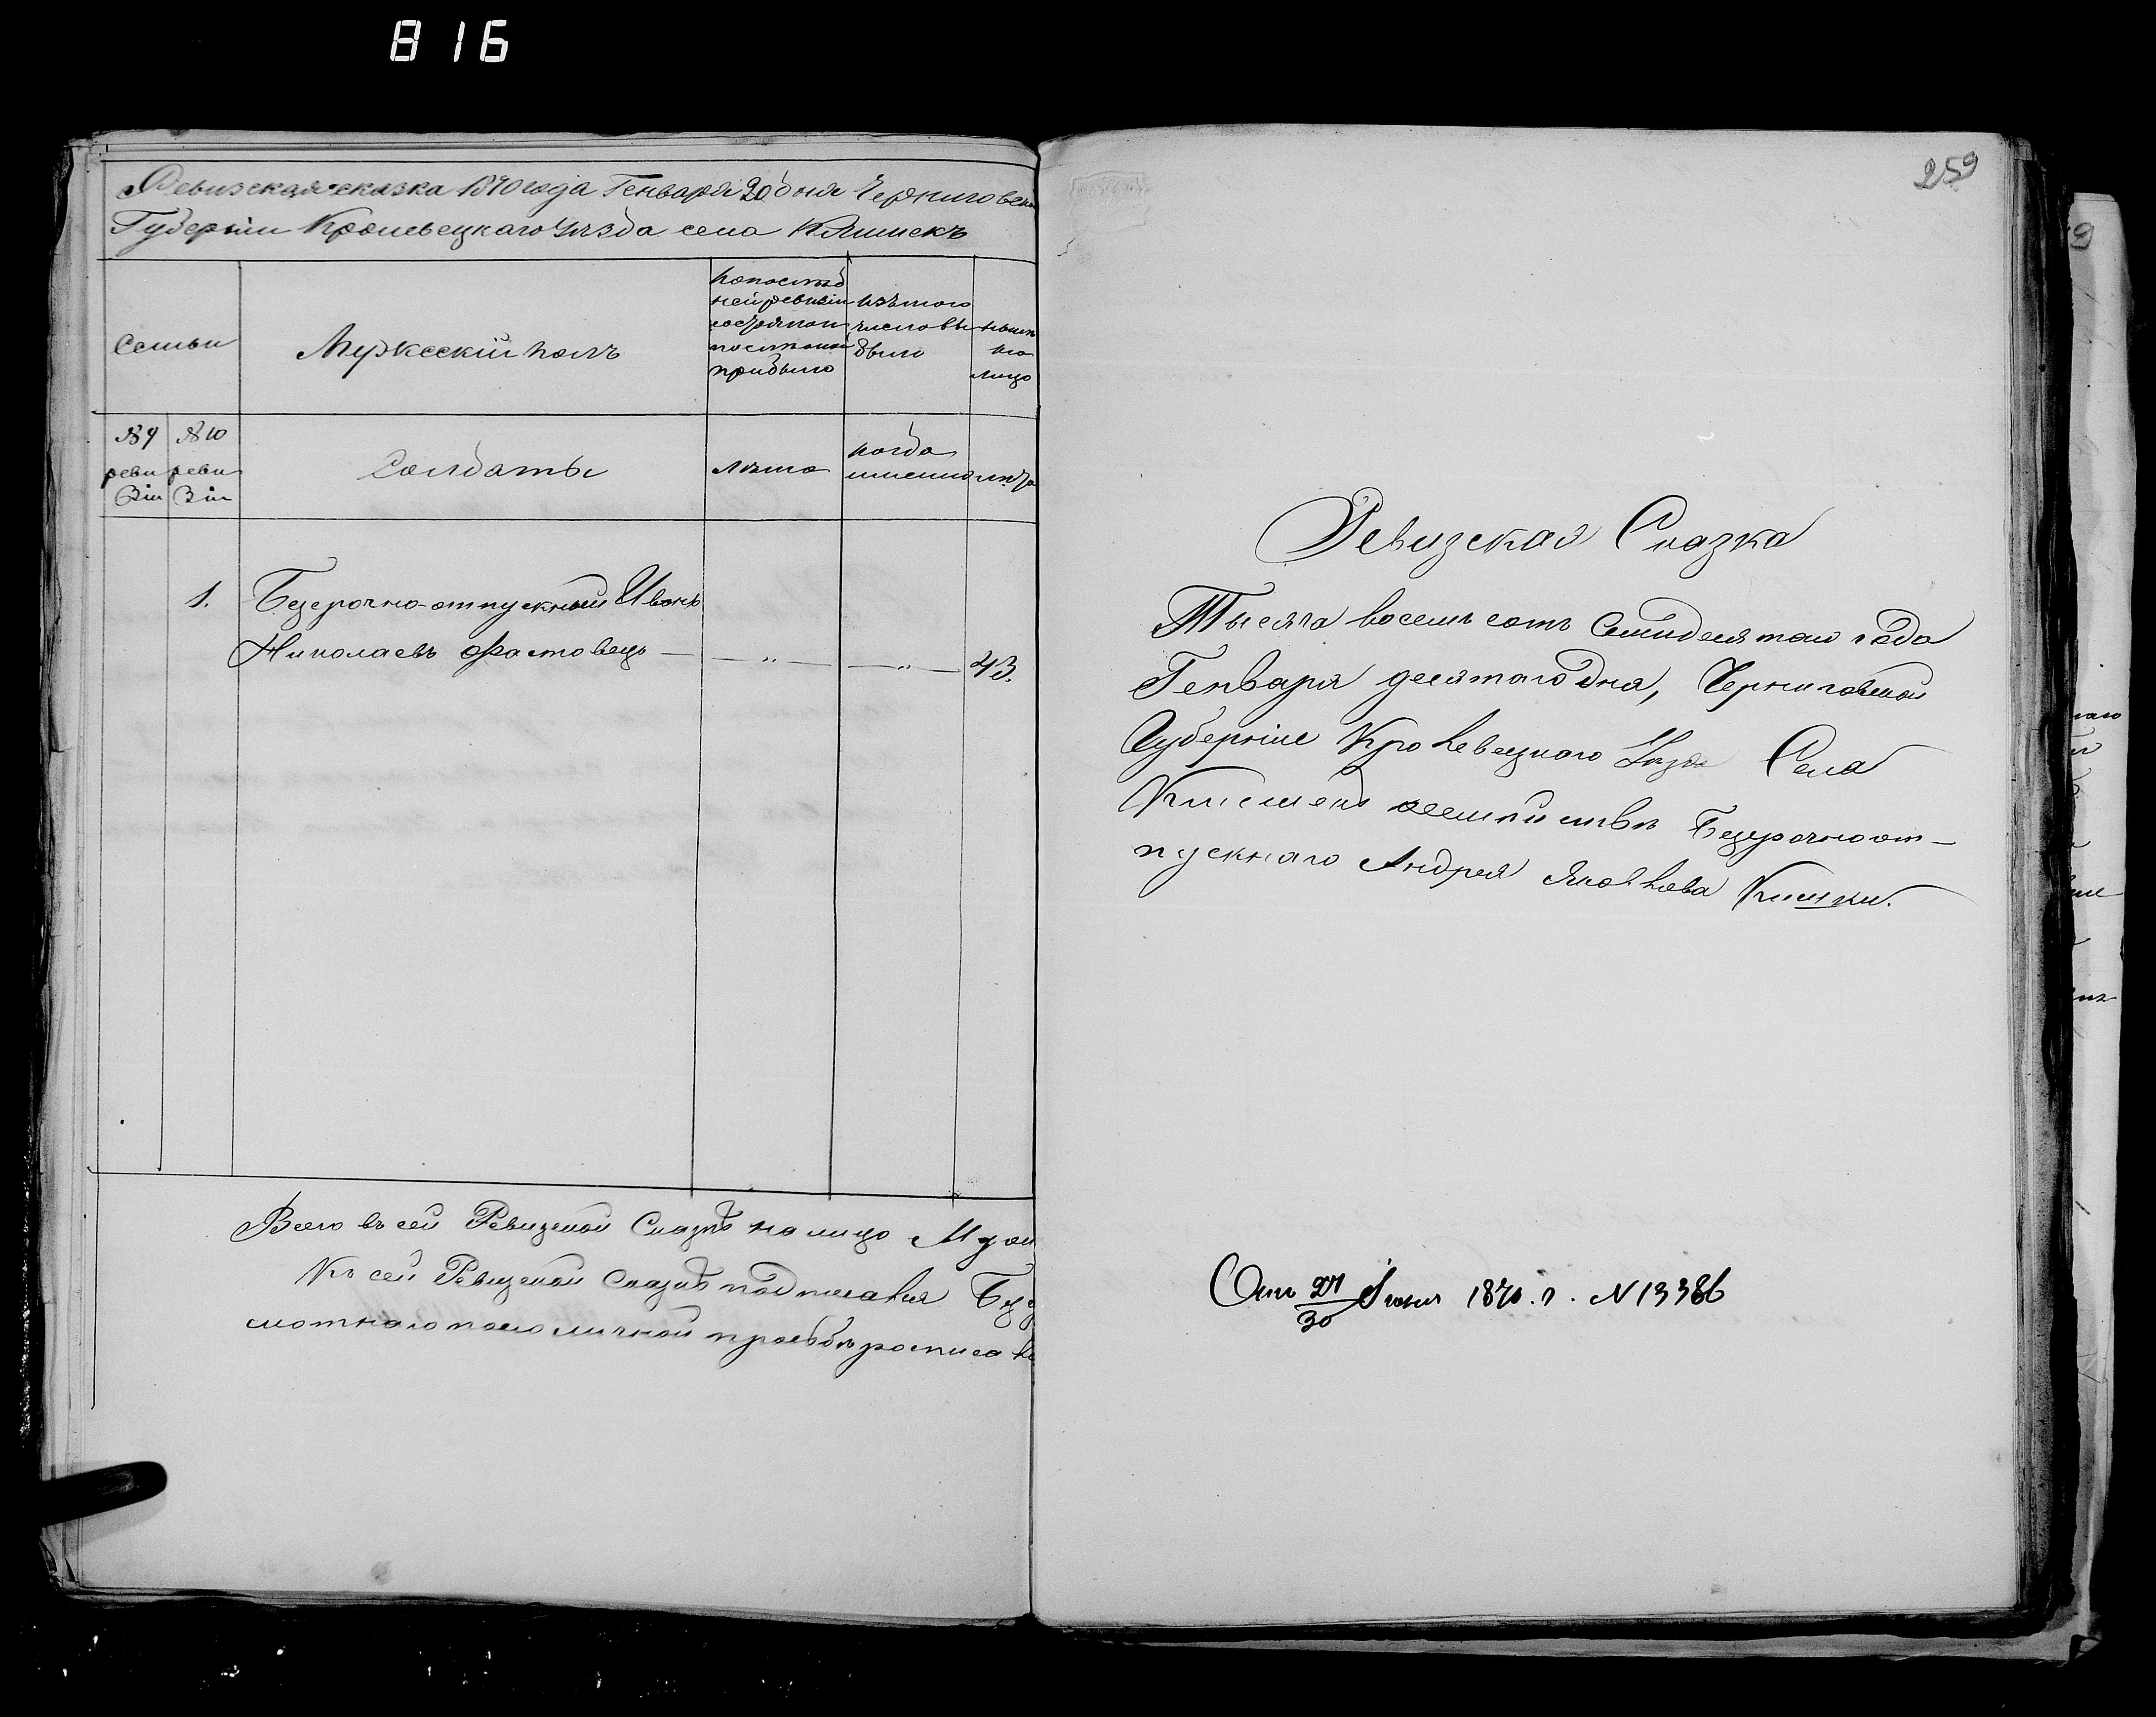 816
Ревизская сказка 1870 года Генваря 20 дня Черниговской
Губерніи Кролевецкаго Уезда села Клишекъ
Семьи
Мужескій полъ
По послед
ней ревизіи
состояло и
после того
прибыло
Изъ того
числа вы
было
Ныне
на
лицо
№ 9 реви зіи
№ 10 реви зіи
Солдаты
Лета
Когда
именно
лета
1. Безсрочно-отпускный Иванъ
Николаевъ Фастовецъ — — „ — — „ — 43.
Всего въ сей Ревизской Сказке на лицо
Къ сей Ревизской Сказке подписался
мотнаго по его личной просьбе росписа
259
Ревизская Сказка
Тысяча восемь сотъ Семидесятаго года
Генваря десятаго дня, Черниговской
Губерніи Кролевецкаго Уезда Села
Безсрочноот-
пускнаго Андрея Яковлева Кишки.
Отъ 27/30 Іюня 1870. г. N 13386